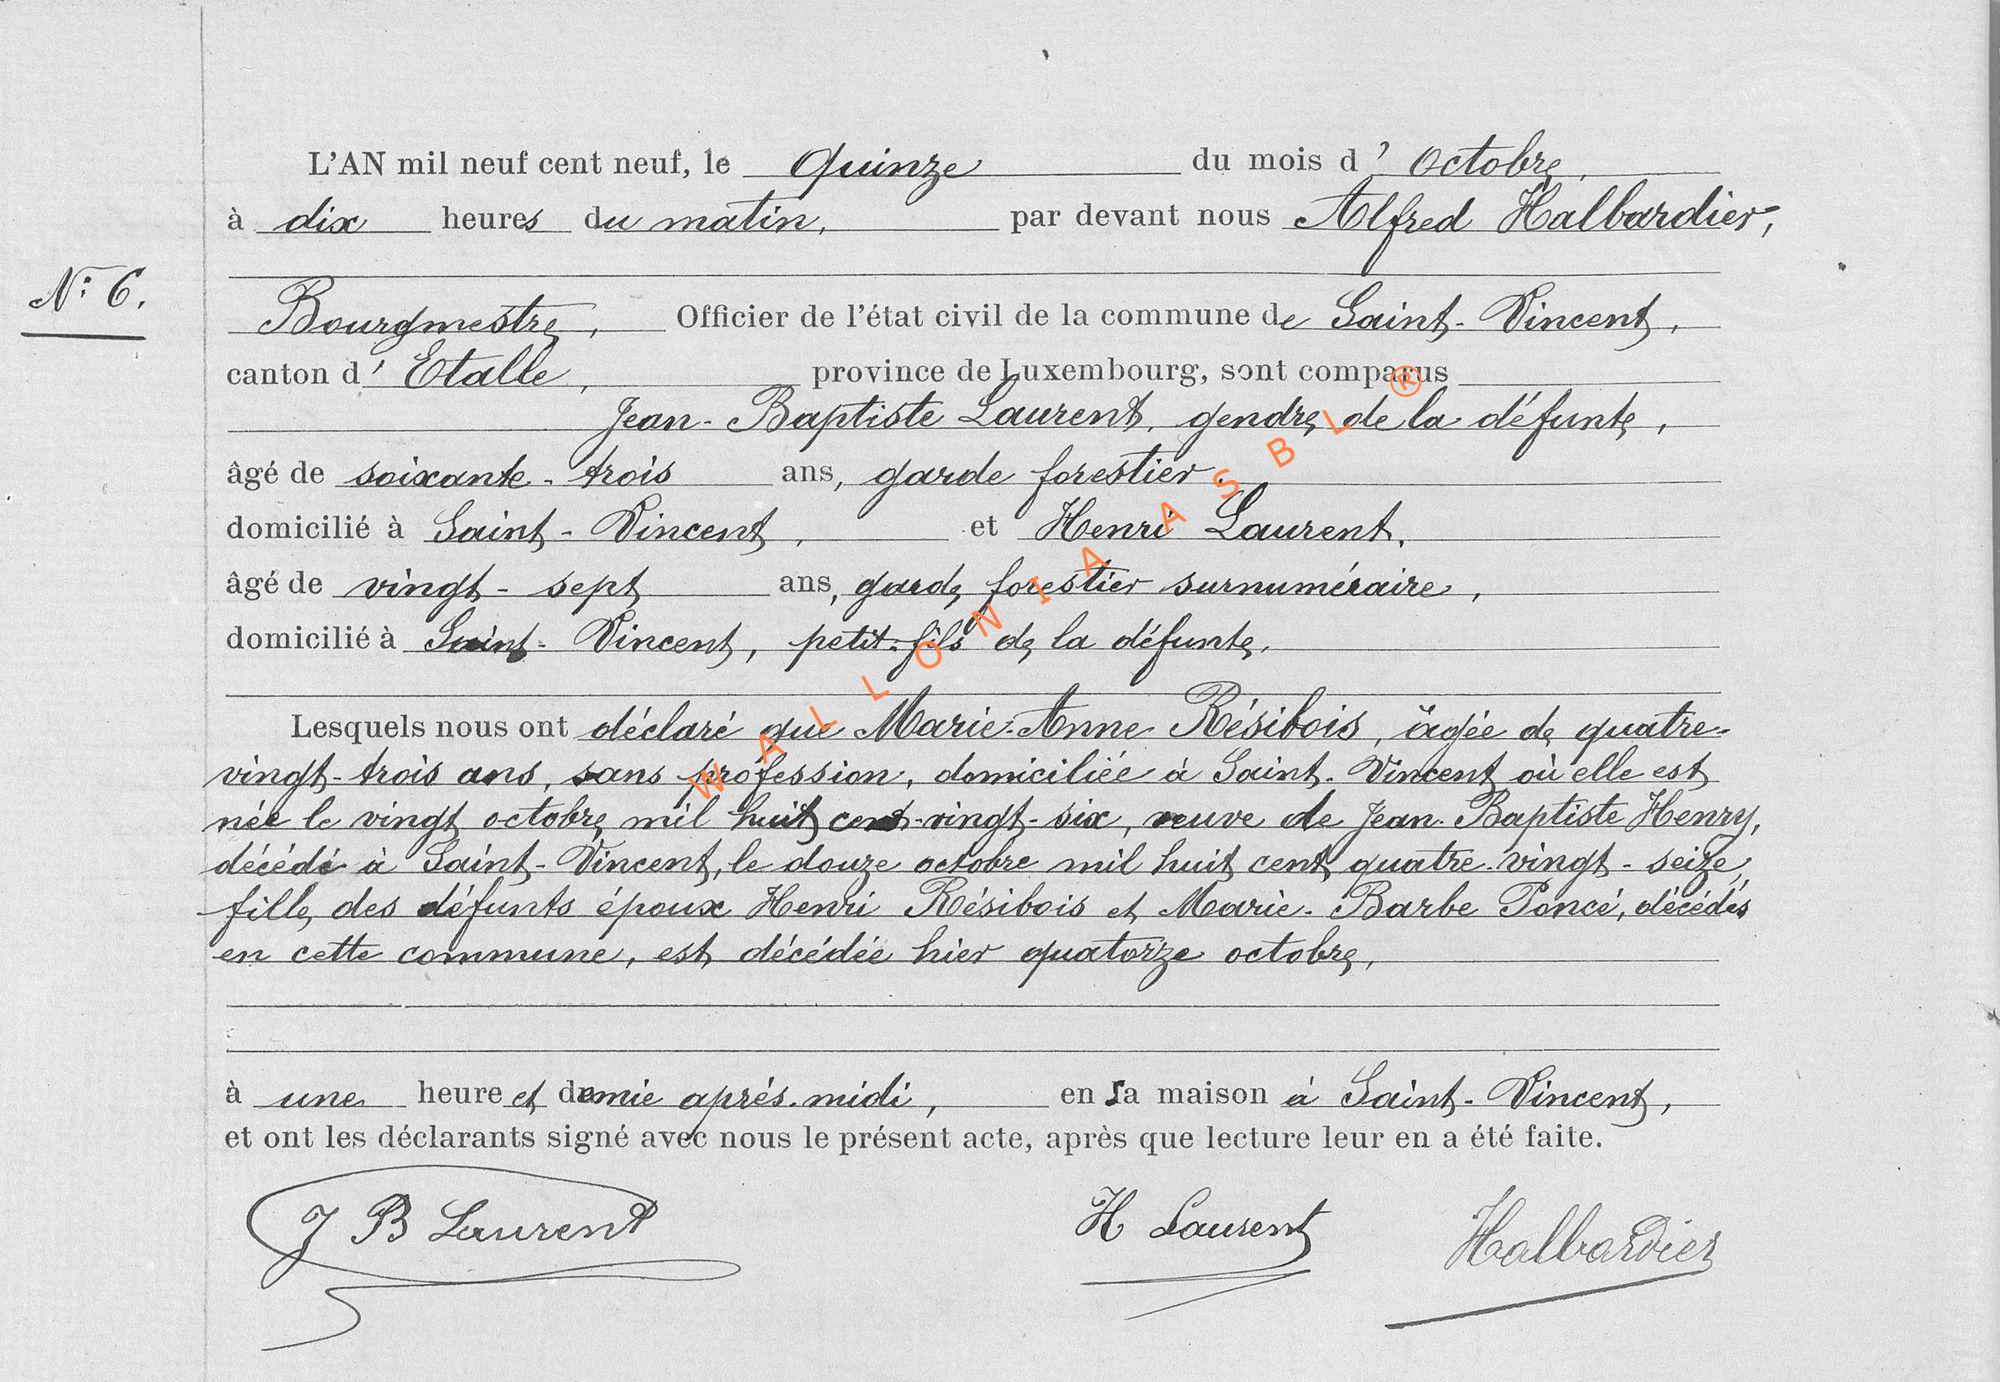 L'AN mil neuf cent neuf, le Quinze du mois d' Octobre,
à dix heures du matin, par devant nous Alfred Halbardier,
N° 6.
Bourgmestre, Officier de l'état civil de la commune de Saint-Vincent,
canton d' Etalle, province de Luxembourg, sont comparus
Jean-Baptiste Laurent, gendre de la défunte,
âgé de soixante-trois ans, garde forestier.
domicilié à Saint-Vincent, et Henri Laurent,
âgé de vingt-sept ans, garde forestier surnuméraire,
domicilié à Saint-Vincent, petit-fils de la défunte,
Lesquels nous ont déclaré que Marie-Anne Résibois, âgée de quatre-
vingt-trois ans, sans profession, domiciliée à Saint-Vincent où elle est
née le vingt octobre mil huit cent-vingt-six, veuve de Jean-Baptiste Henry,
décédé à Saint-Vincent, le douze octobre mil huit cent quatre-vingt-seize,
fille des défunts époux Henri Résibois et Marie-Barbe Poncé, décédés
en cette commune, est décédée hier quatorze octobre,
à une heure et demie après-midi, en sa maison à Saint-Vincent,
et ont les déclarants signé avec nous le présent acte, après que lecture leur en a été faite.
J B Laurent H Laurent Halbardier
WALLONIA ASBL ®